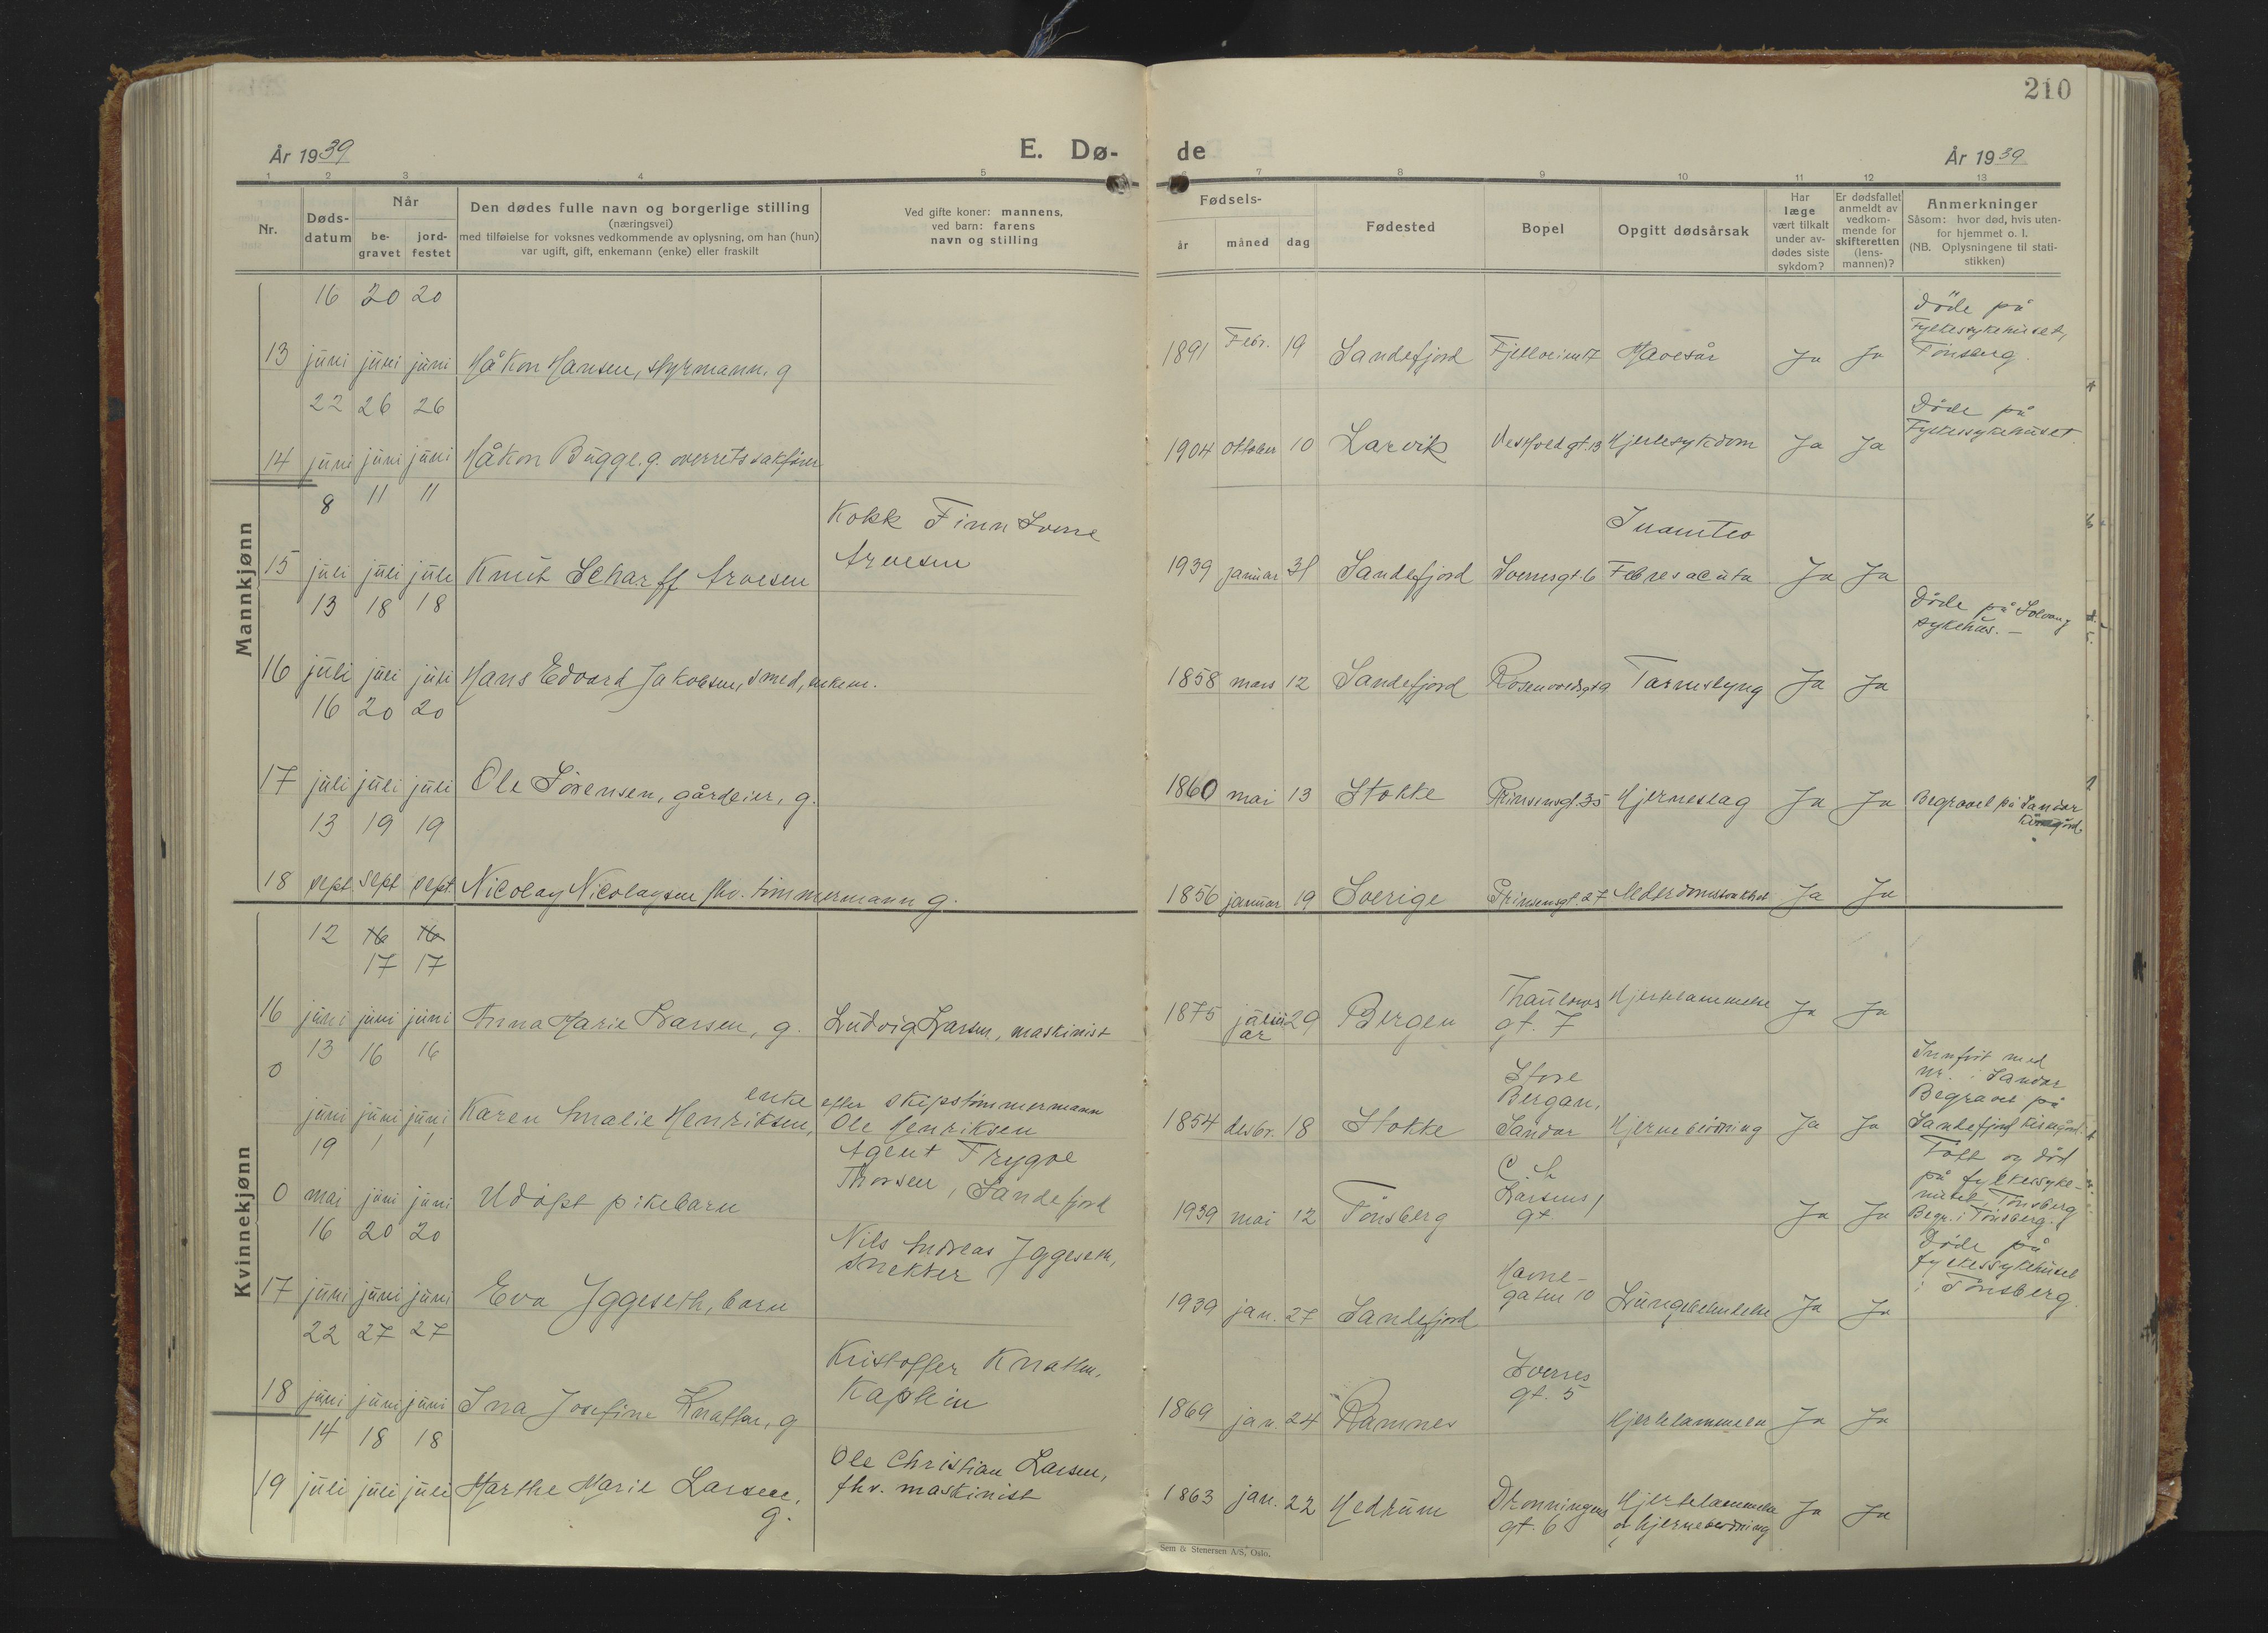 210
År 1939
E. Dø-
de
År 1939
1 2 3 4 5 6 7 8 9 10 11 12 13
Nr.
Døds-
datum
Når
be-
gravet
jord-
festet
Den dødes fulle navn og borgerlige stilling
(næringsvei)
med tilføielse for voksnes vedkommende av oplysning, om han (hun)
var ugift, gift, enkemann (enke) eller fraskilt
Ved gifte koner: mannens,
ved barn: farens
navn og stilling
Fødsels-
år
måned
dag
Fødested
Bopel
Opgitt dødsårsak
Har
læge
vært tilkalt
under av-
dødes siste
sykdom?
Er dødsfallet
anmeldt av
vedkom-
mende for
skifteretten
(lens-
mannen)?
Anmerkninger
Såsom: hvor død, hvis uten-
for hjemmet o. l.
(NB. Oplysningene til stati-
stikken)
Mannkjønn
16 20 20
13 juni juni juni Håkon Hansen, styrmann, g
1891 Febr. 19 Sandefjord Fjellveien 7 Mavesår Ja Ja
Døde på
Fylkessykehuset,
Tønsberg.
22 26 26
14 juni juni juni Håkon Bugge. g. overretssakfører
1904 oktober 10 Larvik Vestfoldgt. 13 Hjertesykdom Ja Ja
Døde på
Fylkessykehuset.
8 11 11
15 juli juli juli Knut Scharff Arvesen
Kokk Finn Sverre
Arvesen
1939 januar 31 Sandefjord Sverresgt. 6
Febres acuta Ja Ja
13 18 18
16 juli juli juli Hans Edvard Jakobsen, smed, enkem.
1858 mars 12 Sandefjord Rosenvoldsgt 9 Tarmslyng Ja Ja
Døde på Solvang
sykehus. -
16 20 20
17 juli juli juli Ole Sørensen, gårdeier, g.
1860 mai 13 Stokke Prinsensgt. 35 Hjerneslag Ja Ja
Begravet på Sandar
Kirkegård.
13 19 19
18 sept. sept sept. Nicolay Nicolaysen fhv. tømmermann g.
1856 januar 19 Sverige Prinsensgt. 27 Alderdomssvakhet Ja Ja
Kvinnekjønn
12 16 16
17 17
16 juni juni juni Anna Marie Larsen, g. Ludvig Larsen, maskinist
1875 29 Bergen
Thaulows
gt. 7
Hjertelammelse Ja Ja
13 16 16
0
juni juni juni Karen Amalie Henriksen,
enke efter skipstømmermann
Ole Henriksen
1854 desbr. 18 Stokke
Store
Bergan,
Sandar
Hjerneblødning Ja Ja
Innført med
nr. i Sandar
Begravet på
Sandefjord kirkegård.
19 1 1
0 mai juni juni Udøpt pikebarn
Agent Trygve
Thorsen, Sandefjord
1939 mai 12 Tønsberg
C. h
Larsens
gt.
Ja Ja
Født og død
på fylkessyke-
huset, Tønsberg
Begr. i Tønsberg.
16 20 20
17 juni juni juni Eva Yggeseth, barn
Nils Andreas Yggeseth,
snekker
1939 jan. 27 Sandefjord
Havne-
gaten 10
Lungebetendelse Ja Ja
Døde på
fylkessykehuset
i Tønsberg.
22 27 27
18 juni juni juni Ina Josefine Knatten, g
Kristoffer Knatten,
Kaptein
1869 jan. 24 Ramnes
Sverres
gt. 5
Hjertelammelse Ja Ja
14 18 18
19 juli juli juli Marthe Marie Larsen,
g.
Ole Christian Larsen,
fhv. maskinist
1863 jan. 22 Hedrum
Dronningens
gt. 6
Hjertelammelse
og hjerneblødning
Ja Ja
Sem & Stenersen A/S, Oslo.